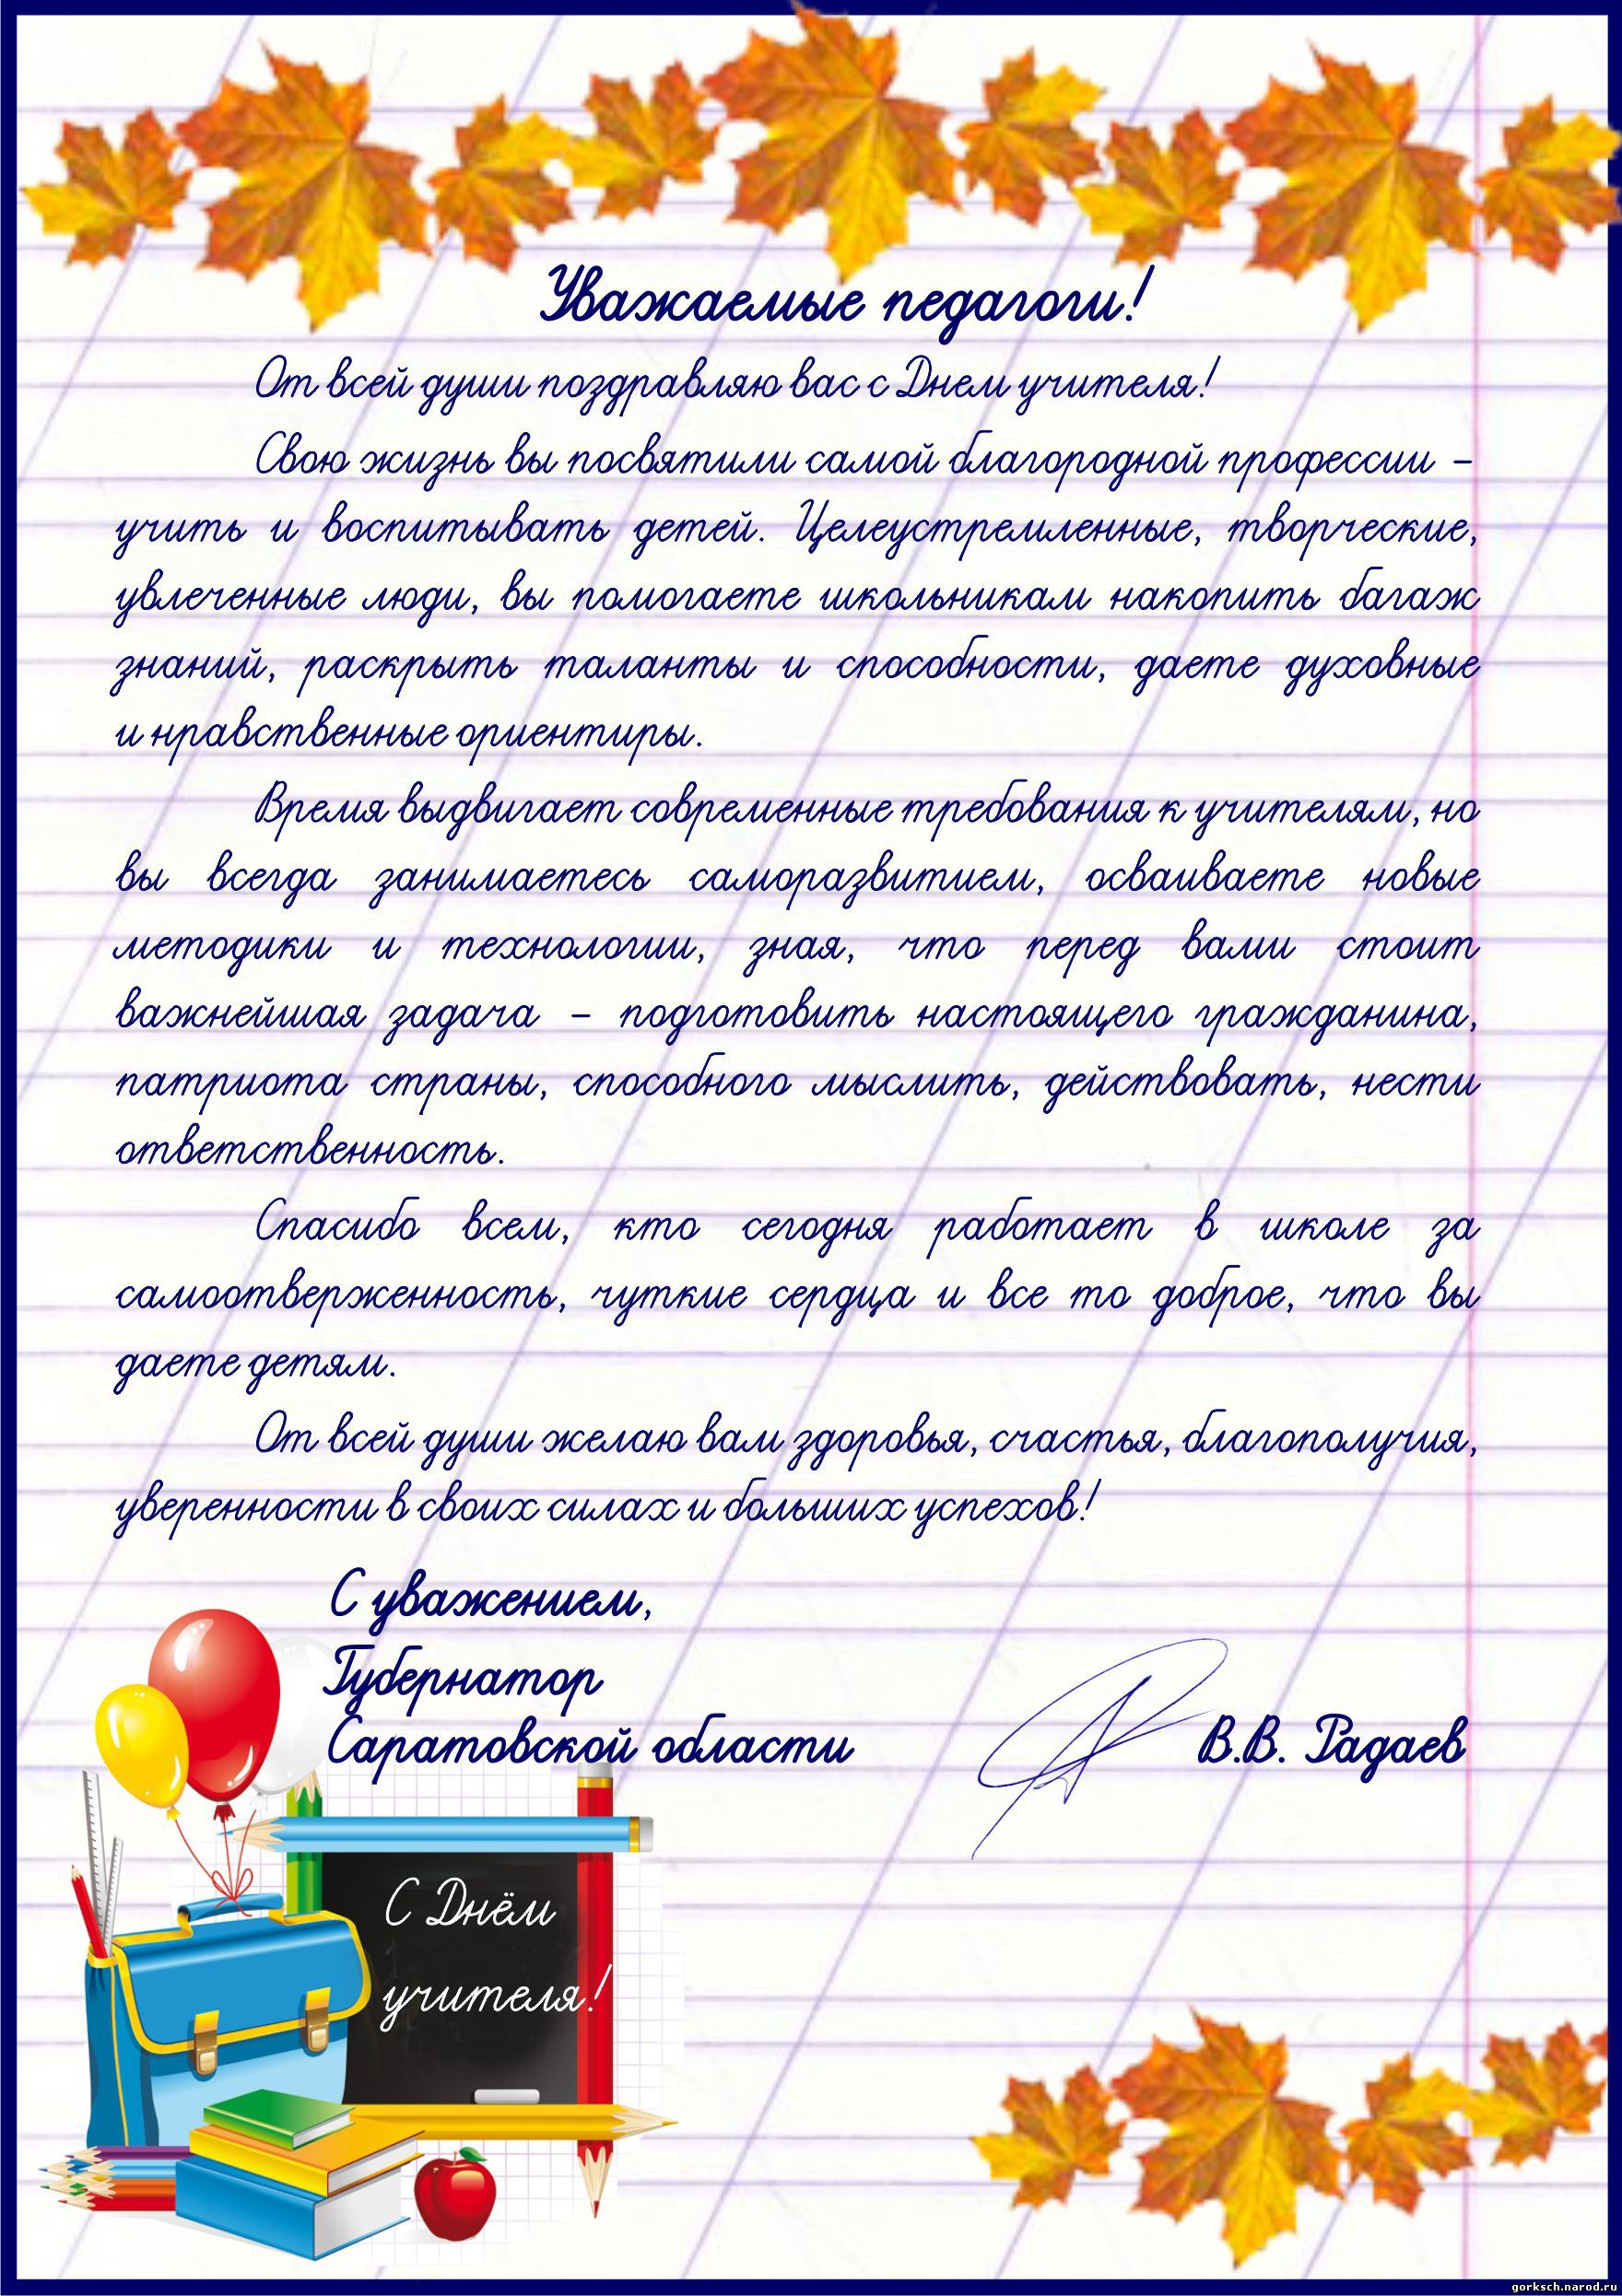 Уважаемые педагоги!
От всей души поздравляю вас с Днем учителя!
Свою жизнь вы посвятили самой благородной профессии –
учить и воспитывать детей. Целеустремленные, творческие,
увлеченные люди, вы помогаете школьникам накопить багаж
знаний, раскрыть таланты и способности, даете духовные
и нравственные ориентиры.
Время выдвигает современные требования к учителям, но
вы всегда занимаетесь саморазвитием, осваиваете новые
методики и технологии, зная, что перед вами стоит
важнейшая задача – подготовить настоящего гражданина,
патриота страны, способного мыслить, действовать, нести
ответственность.
Спасибо всем, кто сегодня работает в школе за
самоотверженность, чуткие сердца и все то доброе, что вы
даете детям.
От всей души желаю вам здоровья, счастья, благополучия,
уверенности в своих силах и больших успехов!
С уважением,
Губернатор
Саратовской области
В.В. Радаев
С Днём
учителя!
gorksch.narod.ru